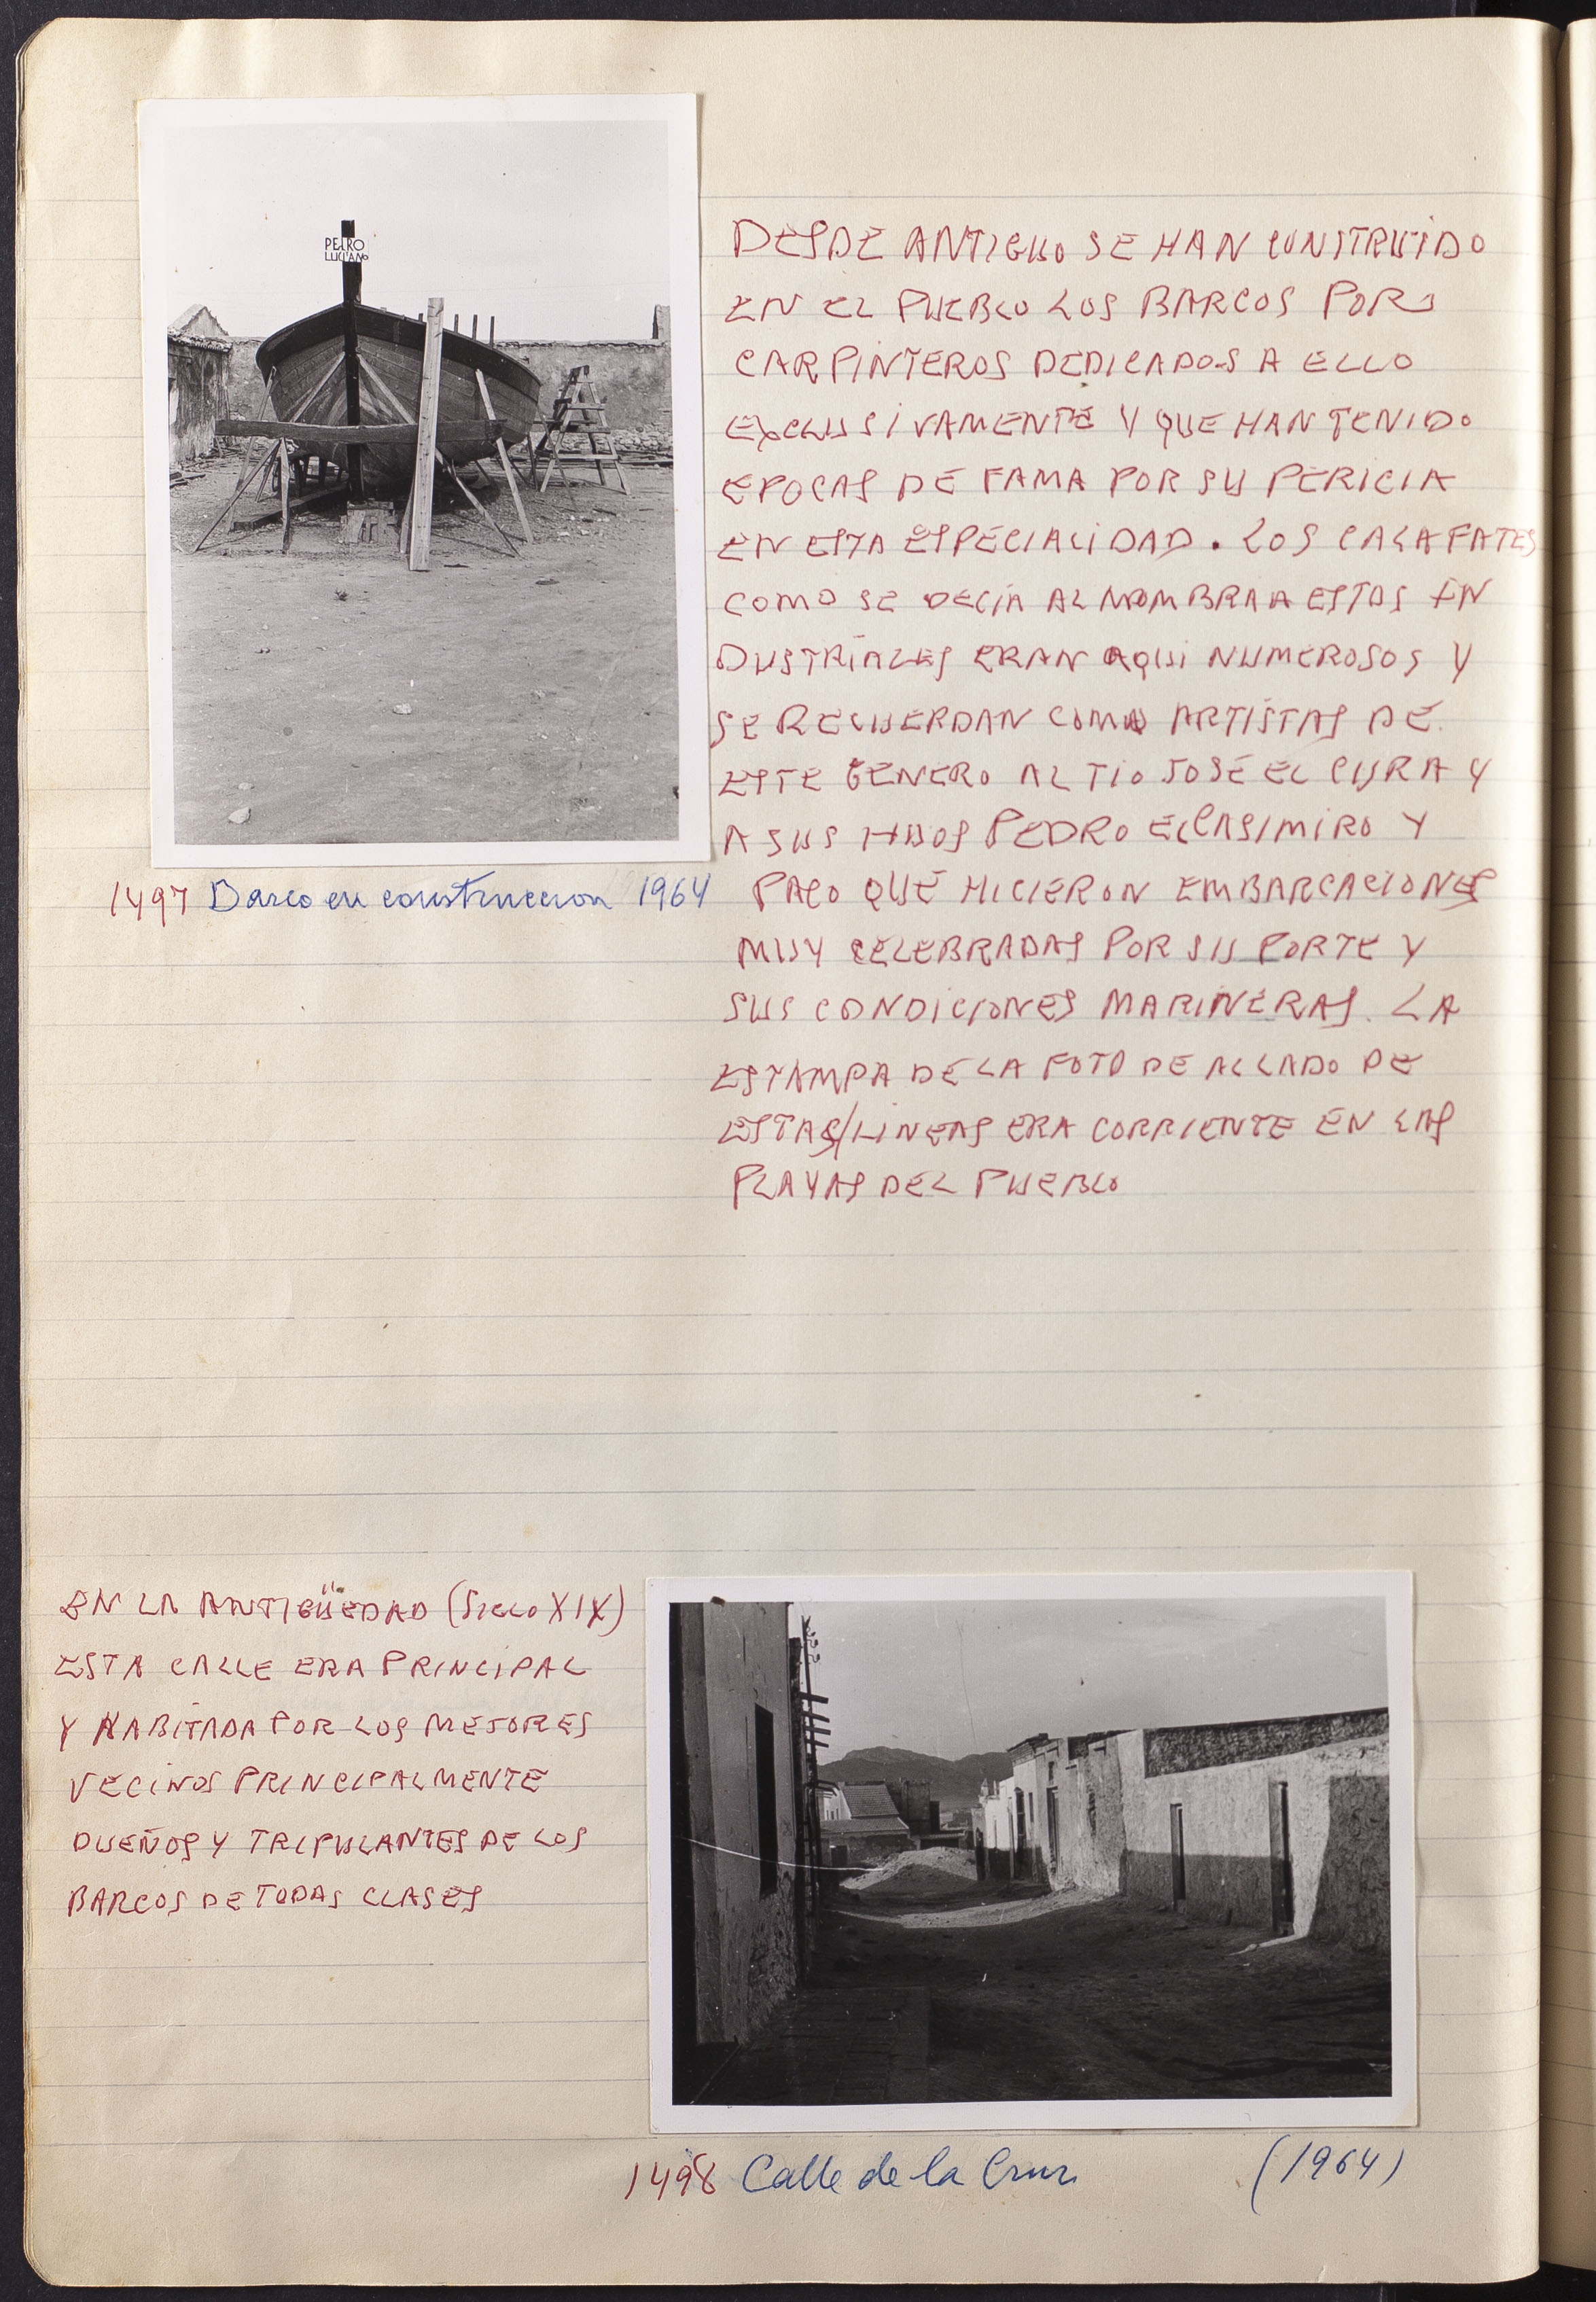 PEDRO
LUCIANO
DESDE ANTIGUO SE HAN CONSTRUIDO
EN EL PUEBLO LOS BARCOS POR
CARPINTEROS DEDICADOS A ELLO
EXCLUSIVAMENTE Y QUE HAN TENIDO
EPOCAS DE FAMA POR SU PERICIA
EN ESTA ESPECIALIDAD. LOS CALAFATES
COMO SE DECIA AL NOMBRA A ESTOS IN
DUSTRIALES ERAN AQUI NUMEROSOS Y
SE RECUERDAN COMO ARTISTAS DE
ESTE GENERO AL TIO JOSÉ EL CURA Y
A SUS HIJOS PEDRO EL CASIMIRO Y
PACO QUE HICIERON EMBARCACIONES
MUY CELEBRADAS POR SU PORTE Y
SUS CONDICIONES MARINERAS. LA
ESTAMPA DE LA FOTO DE AL LADO DE
ESTAS/LINEAS ERA CORRIENTE EN LAS
PLAYAS DEL PUEBLO
1497 Barco en construccion 1964
EN LA ANTIGÜEDAD (SIGLO XIX)
ESTA CALLE ERA PRINCIPAL
Y HABITADA POR LOS MEJORES
VECINOS PRINCIPALMENTE
DUEÑOS Y TRIPULANTES DE LOS
BARCOS DE TODAS CLASES
1498 Calle de la Cruz (1964)